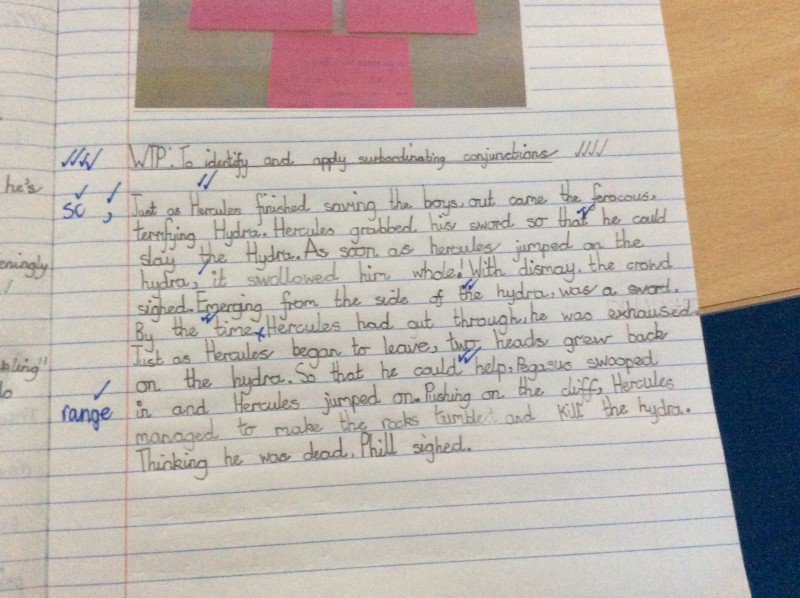 he's
eningly
bling"
lo
sc ,
range
WTP: To identify and apply subordinating conjunctions
Just as Hercules finished saving the boys, out came the feracous,
terrifying Hydra. Hercules grabbed his sword so that he could
slay the Hydra. As soon as hercules jumped on the
hydra, it swollowed him whole! With dismay, the crowd
sighed. Emerging from the side of the hydra, was a sword.
By the time Hercules had cut through, he was exhaused.
Just as Hercules began to leave, two heads grew back
on the hydra. So that he could help, Pegasus swooped
in and Hercules jumped on. Pushing on the cliff, Hercules
managed to make the rocks tumble and kill the hydra.
Thinking he was dead, Phill sighed.